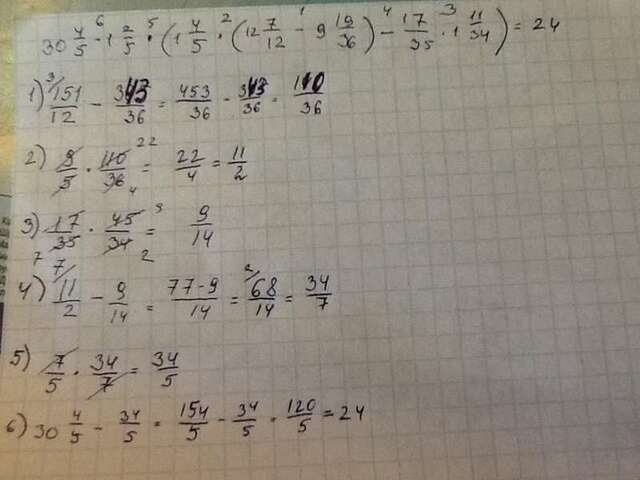 30 4/5 - 1 2/5 · (1 4/5 · (12 7/12 - 9 19/36) - 17/35 · 1 11/34) = 24
1) 151/12 - 343/36 = 453/36 - 343/36 = 110/36
2) 9/5 · 110/36 = 22/4 = 11/2
3) 17/35 · 45/34 = 9/14
4) 11/2 - 9/14 = 77-9/14 = 68/14 = 34/7
5) 7/5 · 34/7 = 34/5
6) 30 4/5 - 34/5 = 154/5 - 34/5 = 120/5 = 24